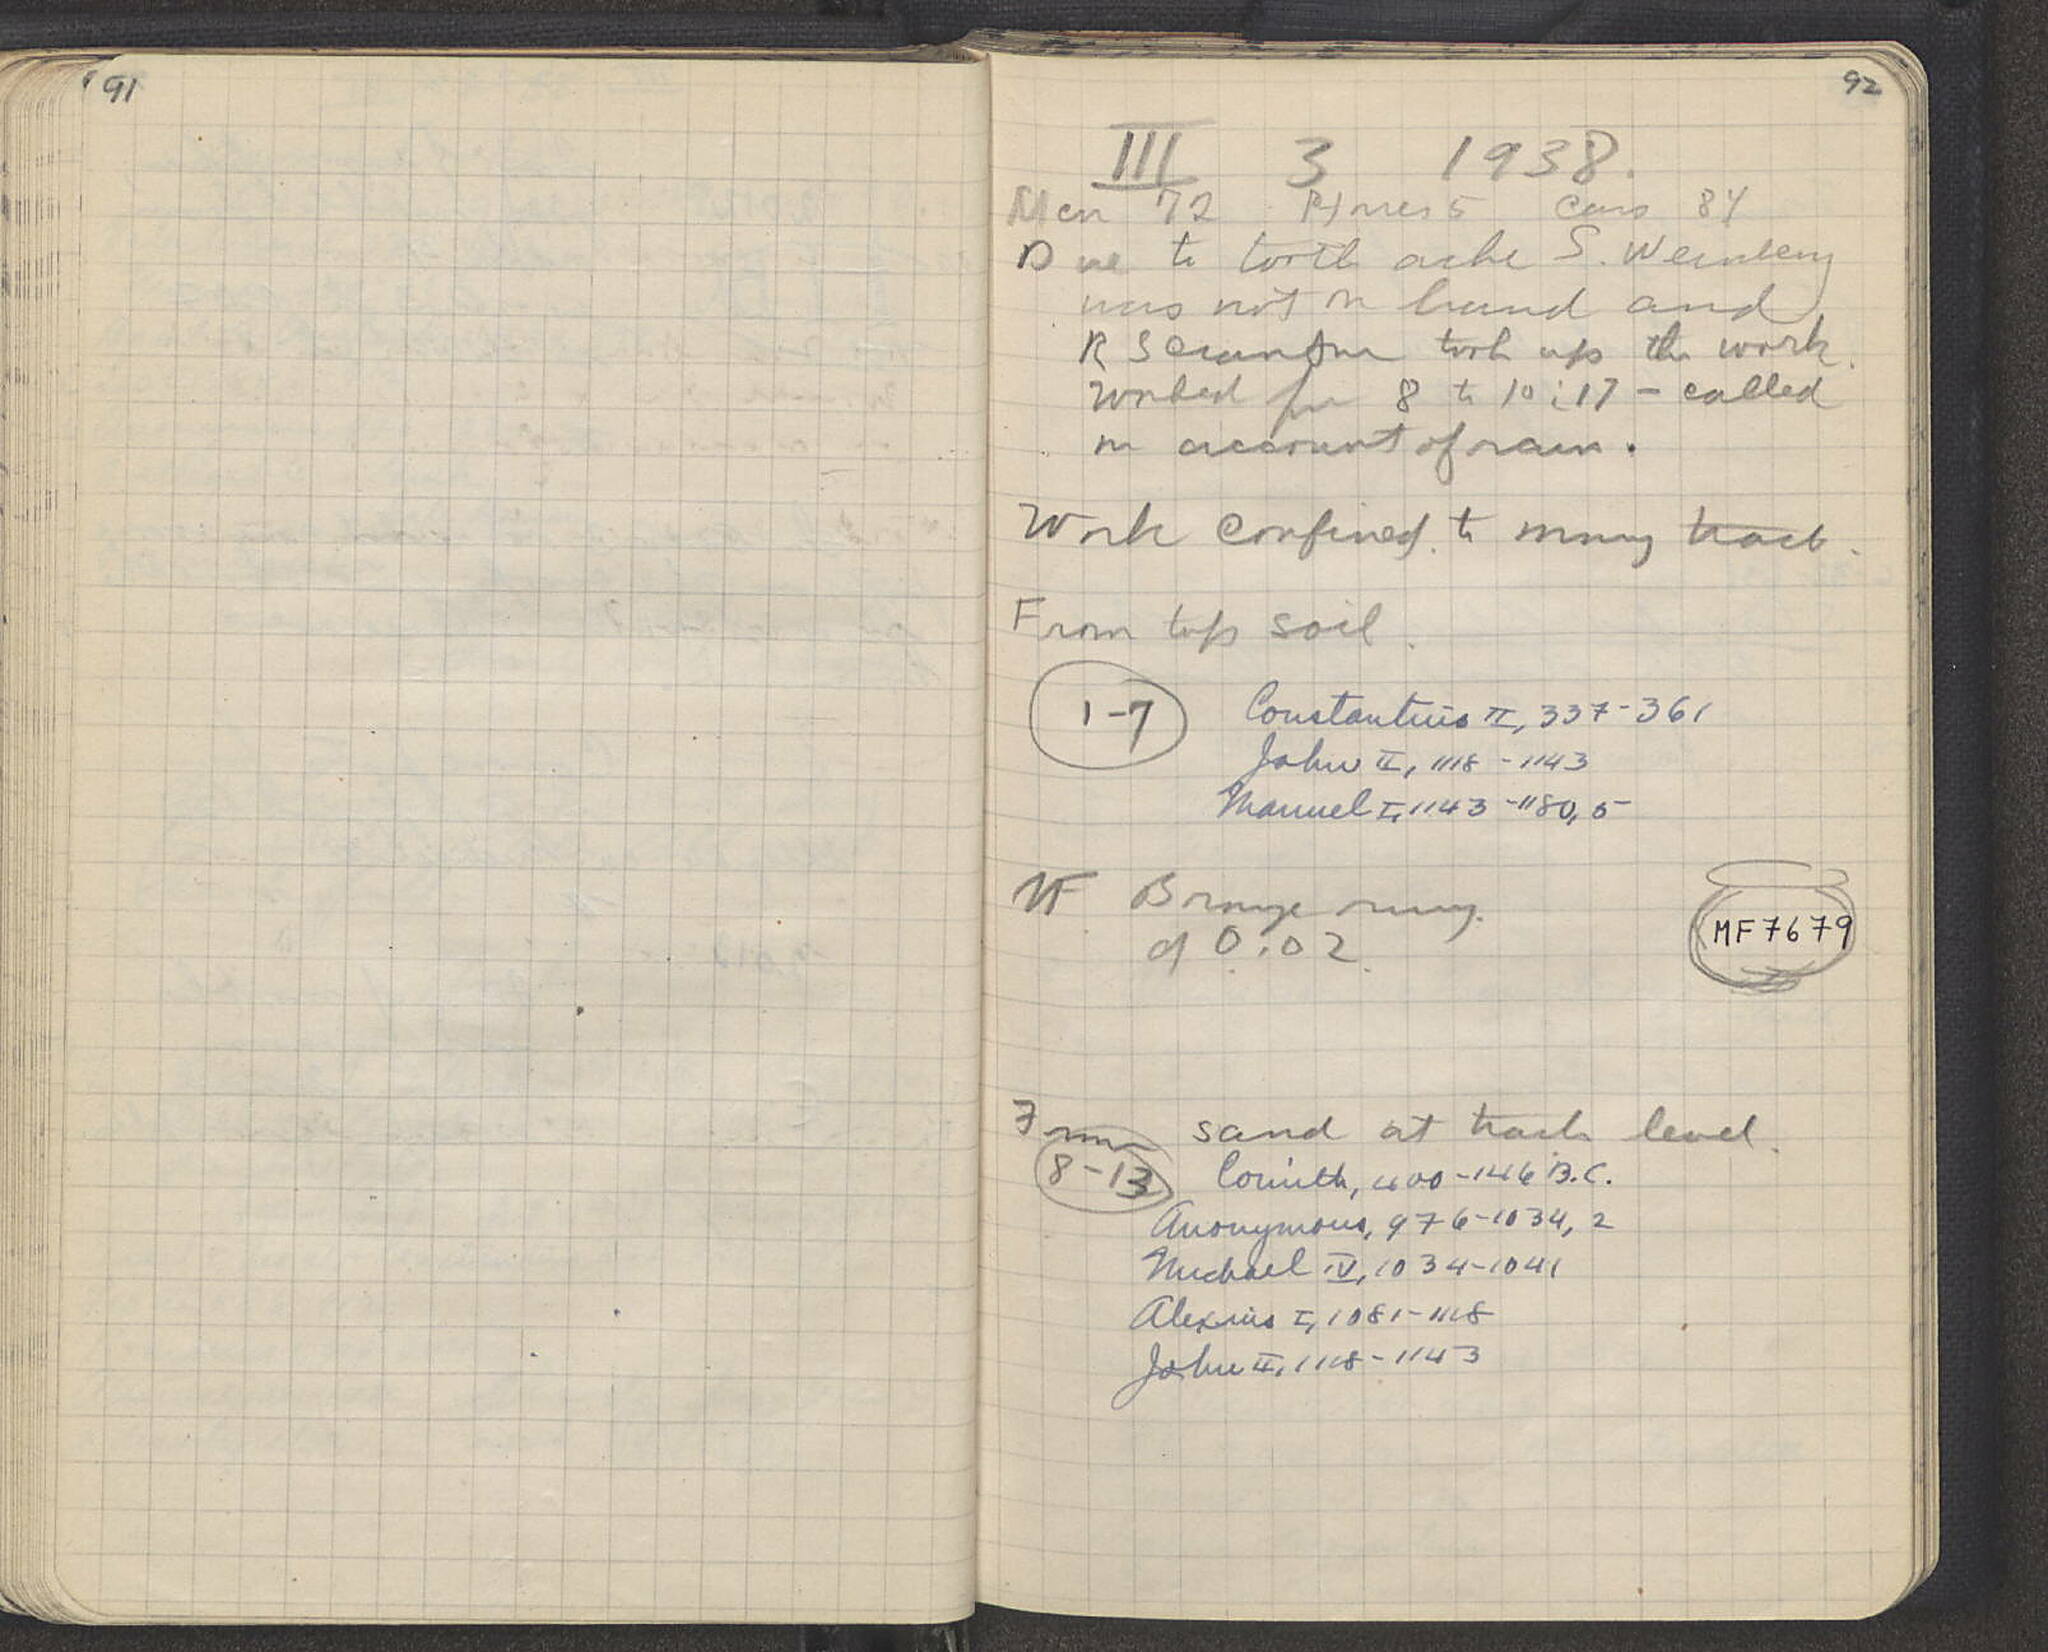 91
92
III 3 1938.
Men 72 Horses 5 Cars 84
Due to tooth ache S. Weinberg
was not on hand and
R Scranton took up the work.
Worked from 8 to 10:17 - called
on account of rain.
Work confined to moving track.
From top soil.
1-7 Constantius II, 337-361
John II, 1118-1143
Manuel I, 1143-1180, 5
VF Bronze ring.
d 0.02
MF 7679
From sand at track level.
8-13 Corinth, 400-146 B.C.
Anonymous, 976-1034, 2
Michael IV, 1034-1041
Alexius I, 1081-1118
John II, 1118-1143